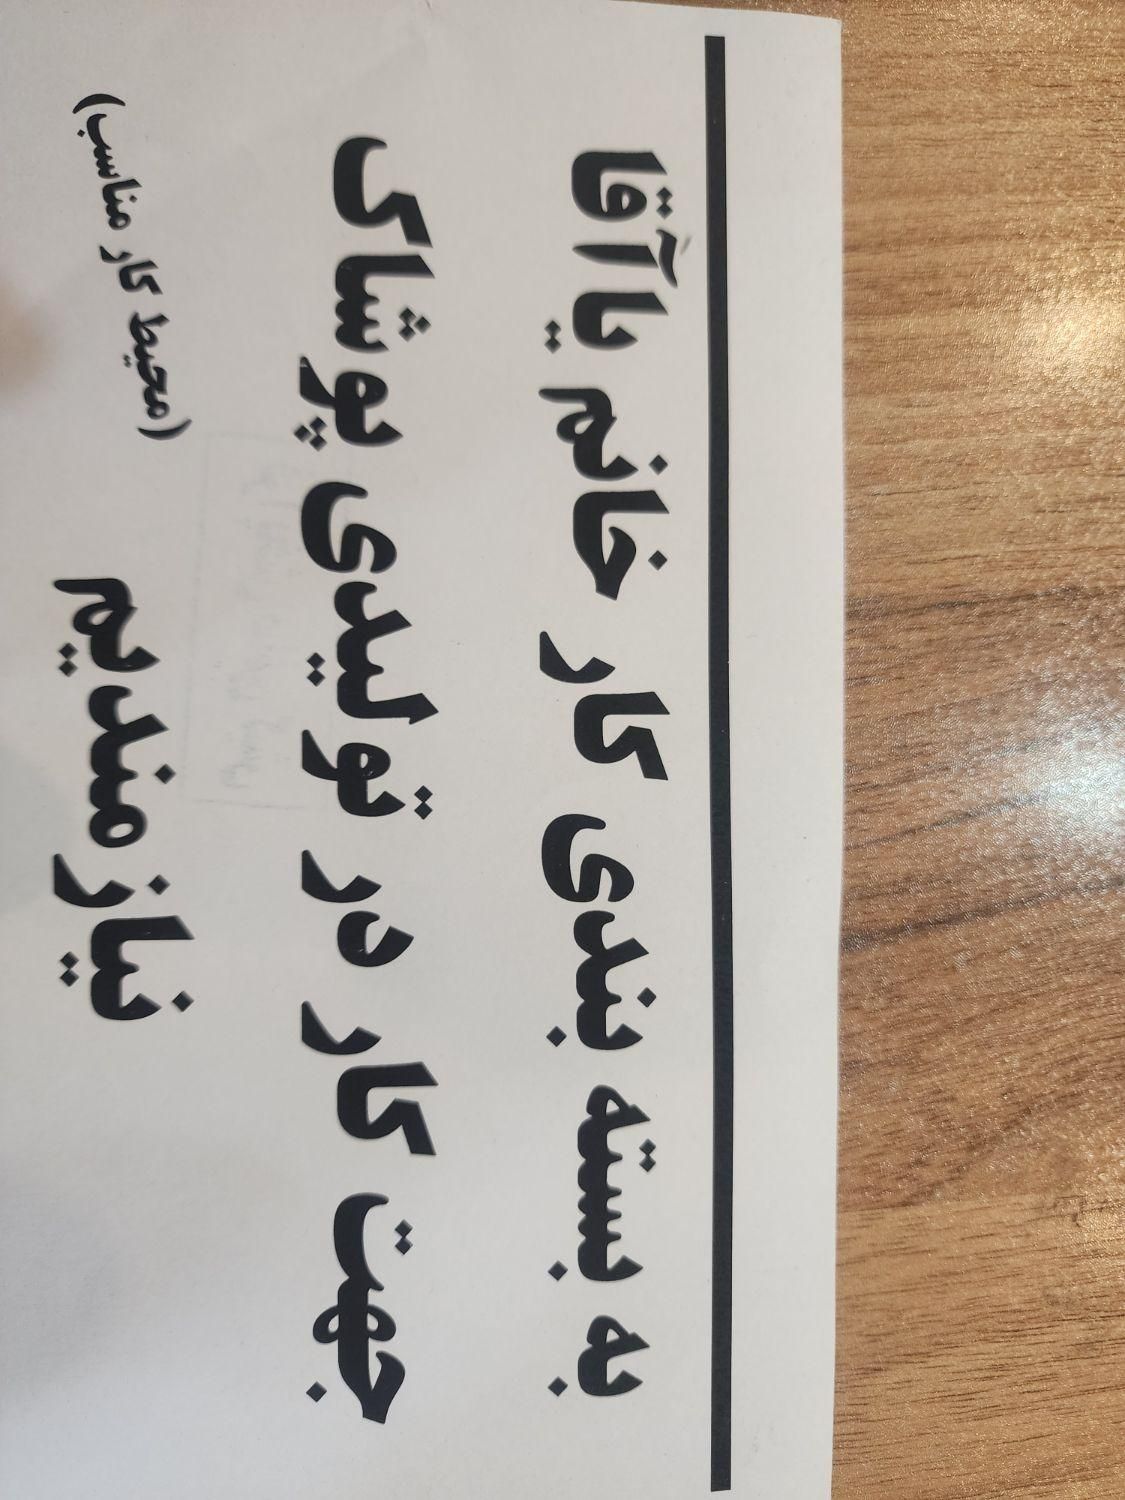 به بسته بندی کار خانم یا آقا
جهت کار در تولیدی پوشاک
نیازمندیم
(محیط کار مناسب)